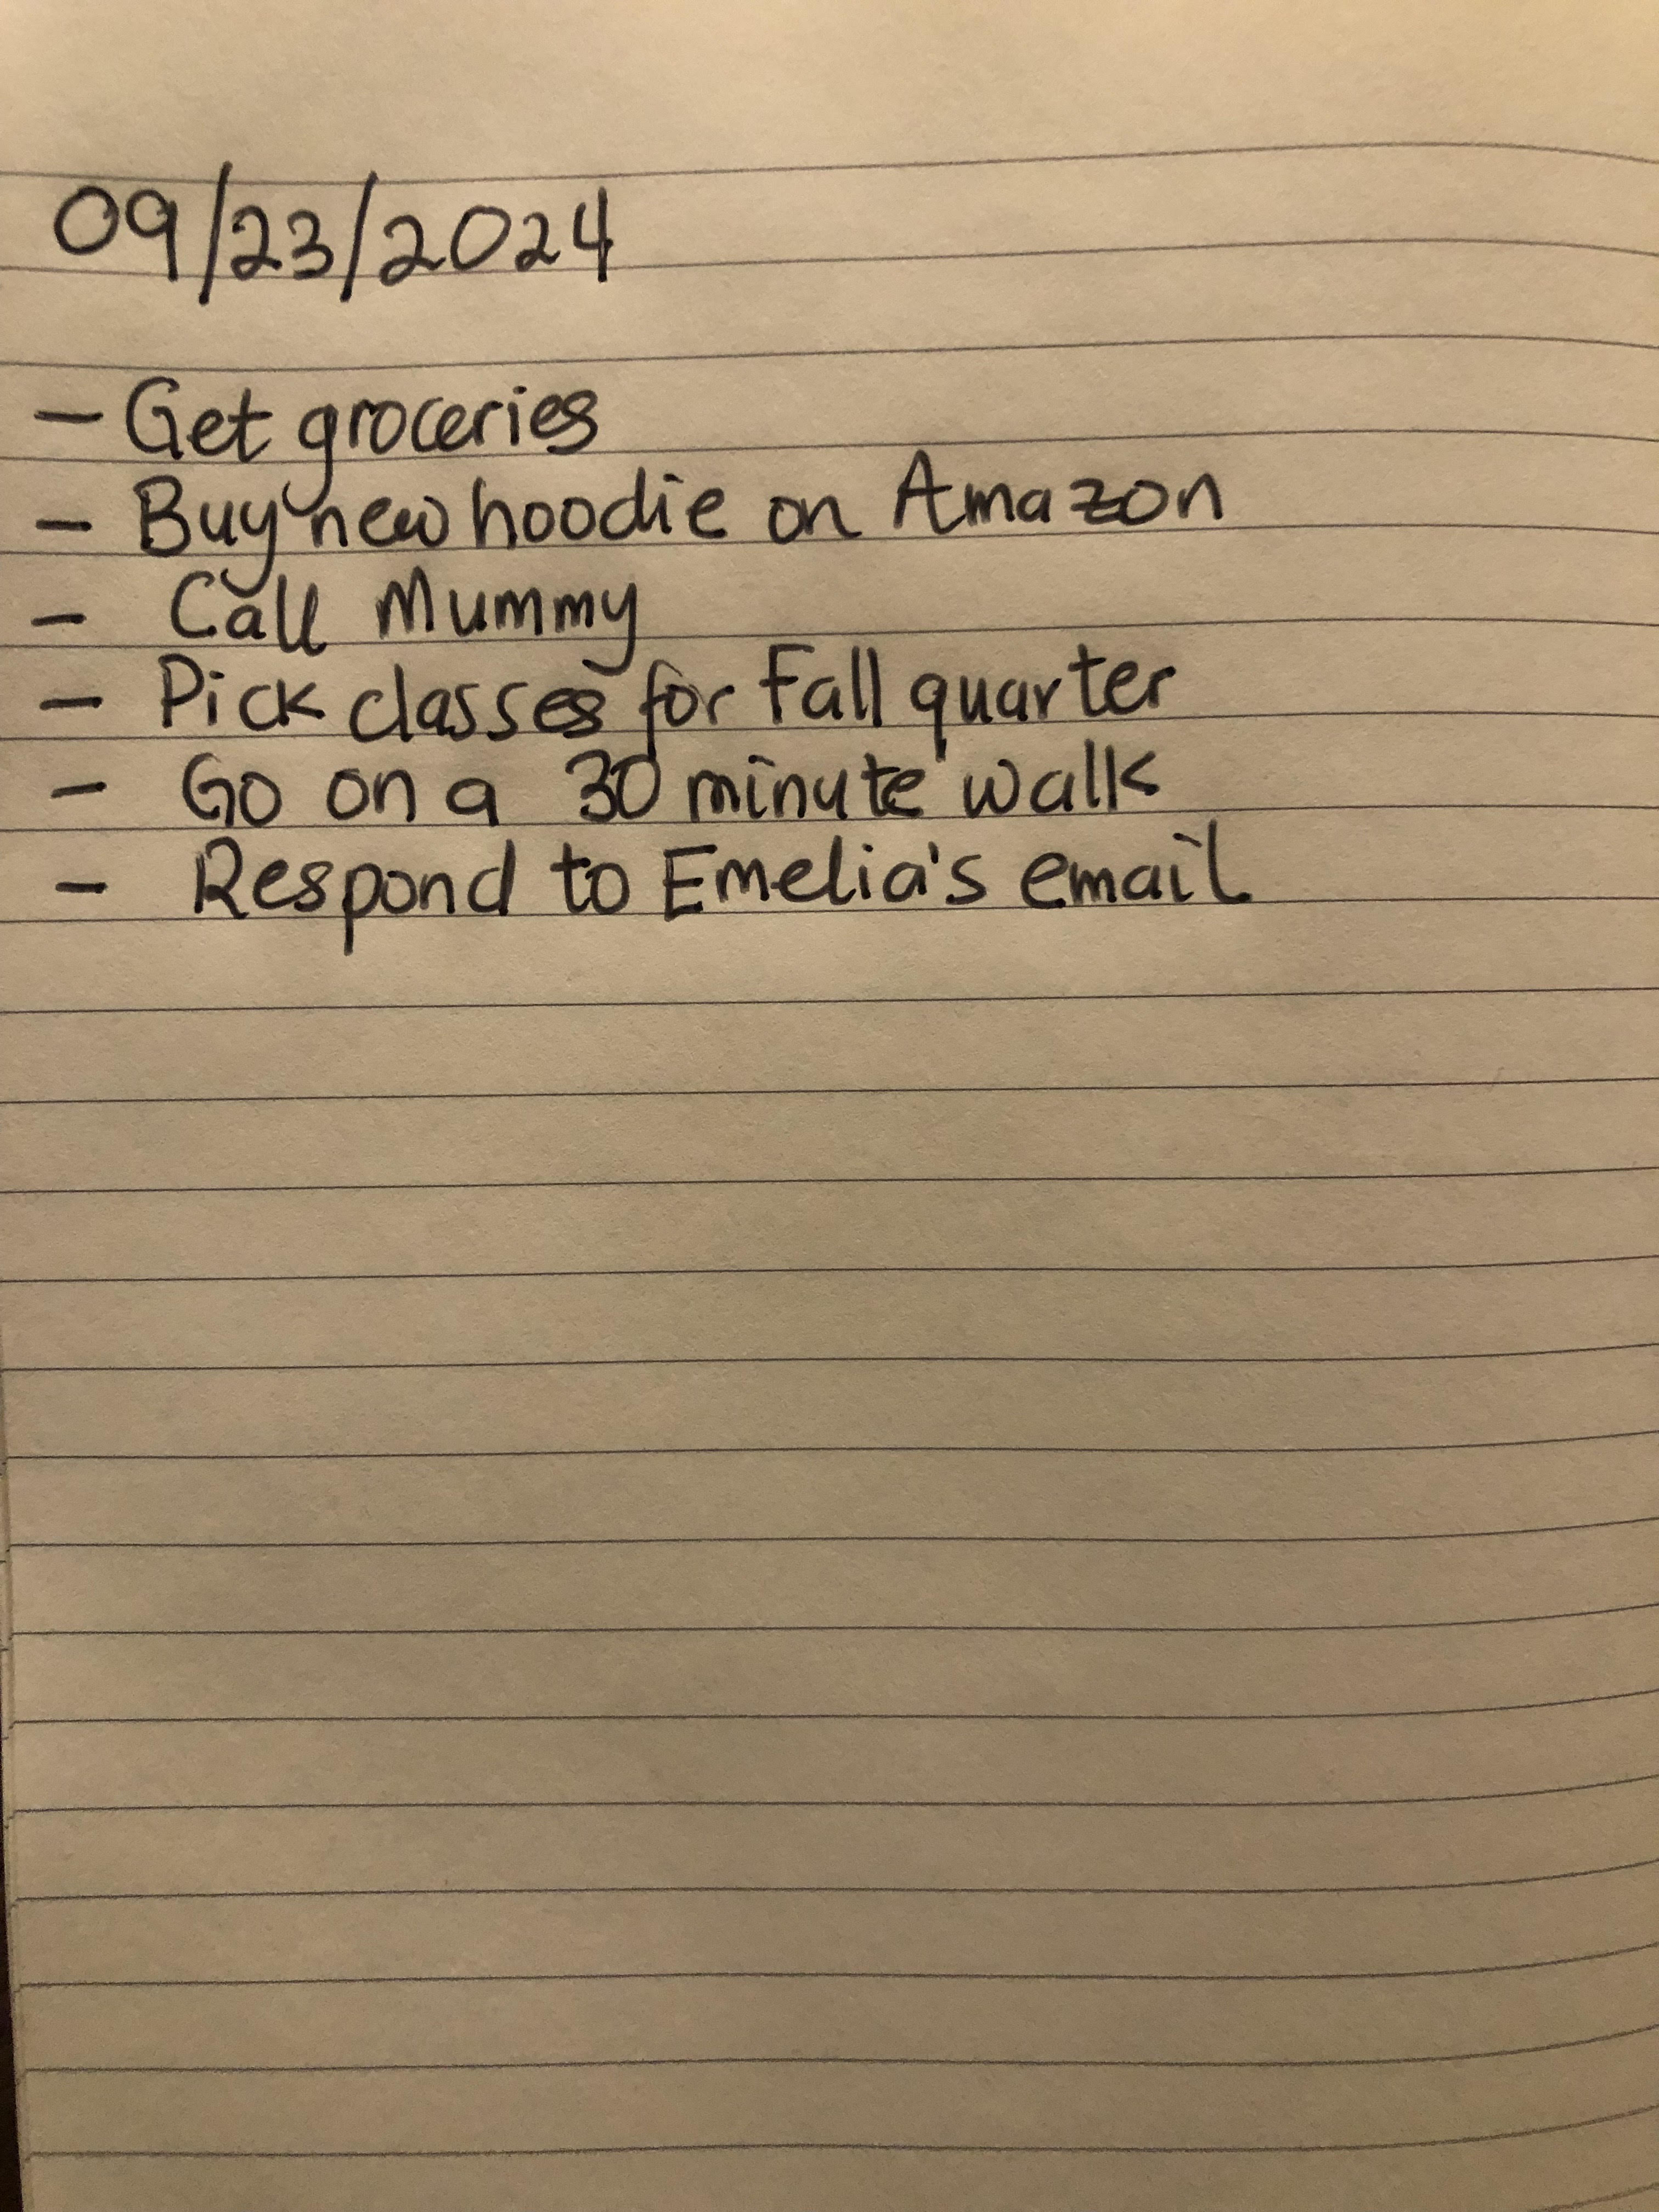 09/23/2024
- Get groceries
- Buy new hoodie on Amazon
- Call Mummy
- Pick classes for Fall quarter
- Go on a 30 minute walk
- Respond to Emelia's email